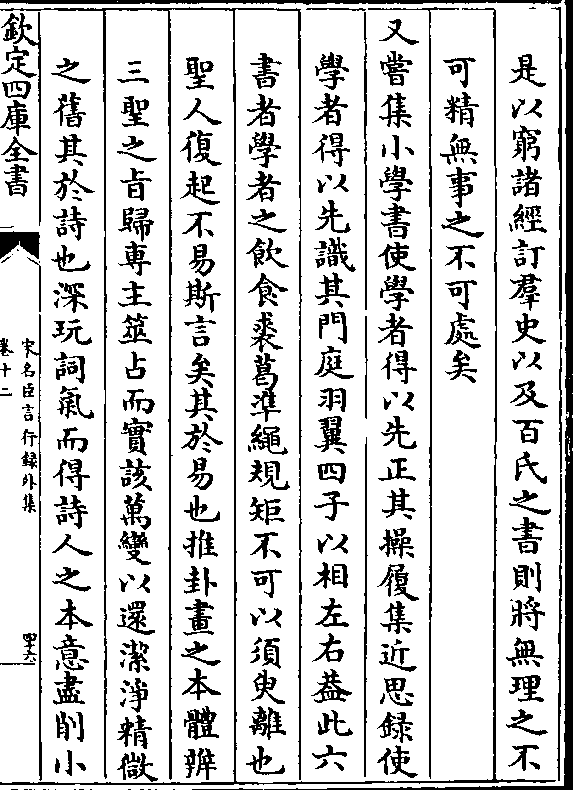 是以窮諸經訂羣史以及百氏之書則將無理之不
可精無事之不可處矣
又嘗集小學書使學者得以先正其操履集近思録使
學者得以先識其門庭羽翼四子以相左右葢此六
書者學者之飲食裘葛準繩規矩不可以須臾離也
聖人復起不易斯言矣其於易也推卦畫之本體辨
三聖之旨歸専主筮占而實該萬變以還潔淨精微
之舊其於詩也深玩詞氣而得詩人之本意盡削小
欽定四庫全書
宋名臣言行録外集
卷十二
四十六